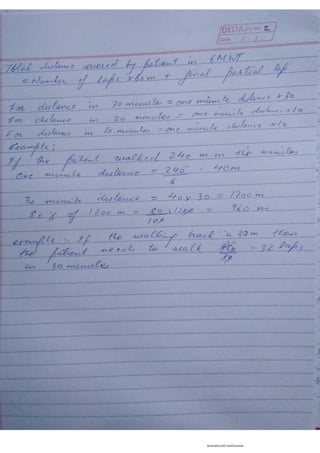 DELTA Pg No. 2
Date / /
Total distance covered by patient in 6MWT
= Number of laps x 60m + final partial lap
For distance in 30 minutes = one minute distance x 30
For distance in 20 minutes = one minute distance x 20
For distance in 10 minutes = one minute distance x 10
example;
If the patient walked 240 m in six minutes
One minute distance = 240 = 40m
6
30 minute distance = 40 x 30 = 1200 m
80% of 1200 m = 80 x 1200 = 960 m
100
example :- If the walking track is 30m then
the patient needs to walk 960 = 32 laps
30
in 30 minutes
Scanned with CamScanner